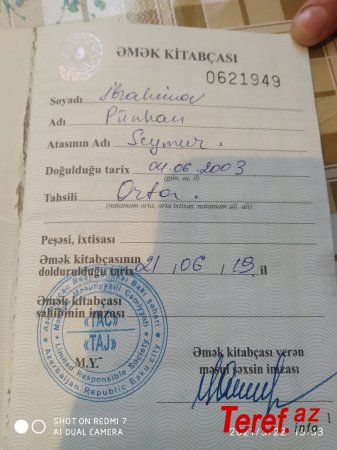 ƏMƏK KİTABÇASI
0621949
Soyadı İbrahimov
Adı Pünhan
Atasının Adı Seymur.
Doğulduğu tarix 04.06.2003
(gün, ay, il)
Təhsili Orta.
(natamam orta, orta ixtisas, natamam ali, ali)
Peşəsi, ixtisası
Əmək kitabçasının
doldurulduğu tarix 21, 06, 19, il
Əmək kitabçası
sahibinin imzası
Azərbaycan Respublikası Bakı şəhəri
Məhdud Məsuliyyətli Cəmiyyəti
«TAC»
«TAJ»
Limited Responsible Society
Azerbaijan Republic Baku city
M.Y.
Əmək kitabçası verən
məsul şəxsin imzası
1
SHOT ON REDMI 7
AI DUAL CAMERA
Teref az
info